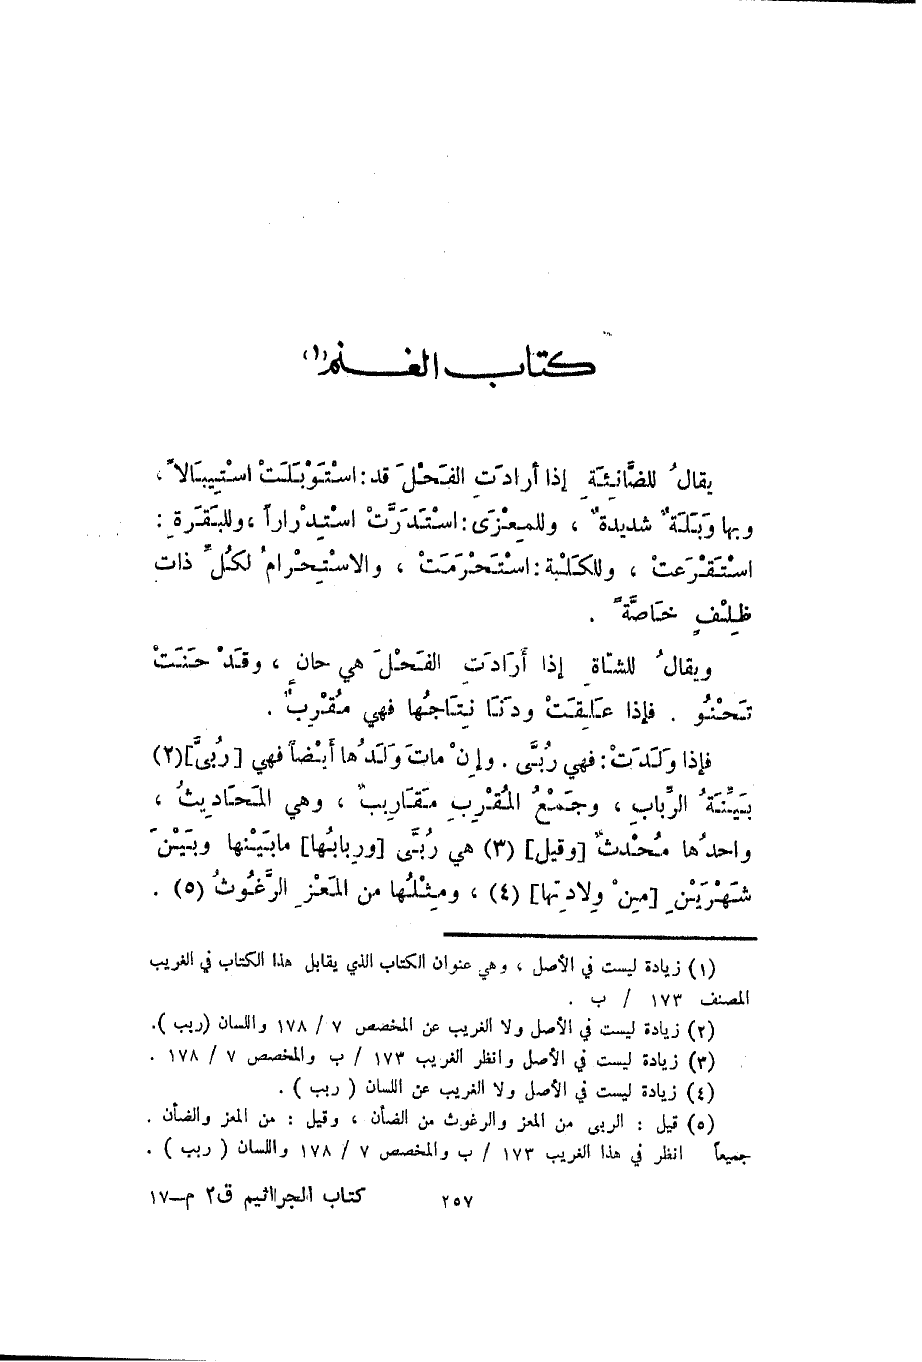 كتاب الغنم (١)
يقالُ للضَّانِئَةِ إذا أرادَتِ الفَحْلَ قد : اسْتَوْبَلَتْ اسْتِيبَالاً ،
وبها وَبَلَةٌ شديدةٌ ، وللمِعْزَى : اسْتَدَرَّتْ اسْتِدْراراً ، وللبَقَرةِ :
اسْتَقْرَعتْ ، وللكَلْبة : اسْتَحْرَمَتْ ، والاسْتِحْرامُ لكُلِّ ذات
ظِلْفٍ خاصَّةً .
ويقالُ للشاةِ إذا أَرَادَتِ الفَحْلَ هي حانٍ ، وقَدْ حَنَتْ
تَحْنُو . فإذا عَلِقَتْ ودَنَا نِتَاجُها فهي مُقْرِبٌ .
فإذا وَلَدَتْ : فهي رُبَّى . وإنْ ماتَ وَلَدُها أيْضاً فهي [رُبىَّ](٢)
بَيِّنَةُ الرِّبابِ ، وجَمْعُ المُقْرِبِ مَقَاريبٌ ، وهي المَحَادِيثُ ،
واحدُها مُحْدثٌ [وقيل] (٣) هي رُبَّى [وربابُها] مابَيْنَها وبَيْنَ
شَهْرَيْنِ [مِنْ وِلادتِها] (٤) ، ومِثْلُها من المَعْزِ الرَّغُوثُ (٥) .
(١) زيادة ليست في الأصل ، وهي عنوان الكتاب الذي يقابل هذا الكتاب في الغريب
المصنف ١٧٣ / ب .
(٢) زيادة ليست في الأصل ولا الغريب عن المخصص ٧ / ١٧٨ واللسان (ريب ).
(٣) زيادة ليست في الأصل وانظر الغريب ١٧٣ / ب والمخصص ٧ / ١٧٨ .
(٤) زيادة ليست في الأصل ولا الغريب عن اللسان ( ربب ) .
(٥) قيل : الربى من المعز والرغوث من الضأن ، وقيل : من المعز والضأن .
جميعاً انظر في هذا الغريب ١٧٣ / ب والمخصص ٧ / ١٧٨ واللسان ( ربب ) .
٢٥٧ كتاب الجراثيم ق٢ م–١٧